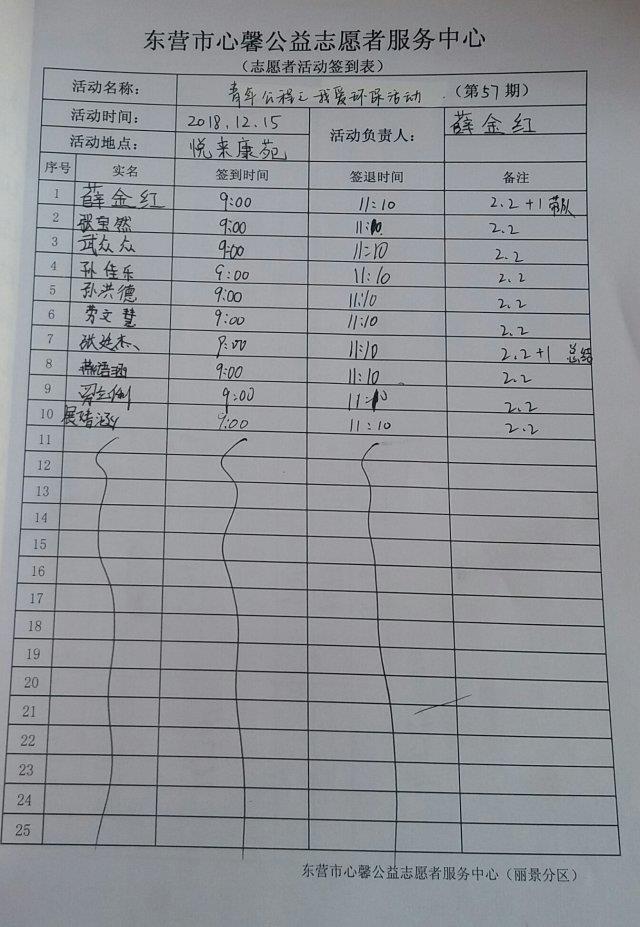 东营市心馨公益志愿者服务中心
（志愿者活动签到表）
活动名称： 青年公程之我爱环保活动 （第57期）
活动时间： 2018.12.15 活动负责人： 薛金红
活动地点： 悦来康苑
序号 实名 签到时间 签退时间 备注
1 薛金红 9:00 11:10 2.2+1 带队
2 张宝然 9:00 11:10 2.2
3 武众众 9:00 11:10 2.2
4 孙佳乐 9:00 11:10 2.2
5 孙洪德 9:00 11:10 2.2
6 劳文慧 9:00 11:10 2.2
7 张延杰 9:00 11:10 2.2+1 总结
8 燕语涵 9:00 11:10 2.2
9 9:00 11:10 2.2
10 9:00 11:10 2.2
11
12
13
14
15
16
17
18
19
20
21
22
23
24
25
东营市心馨公益志愿者服务中心（丽景分区）